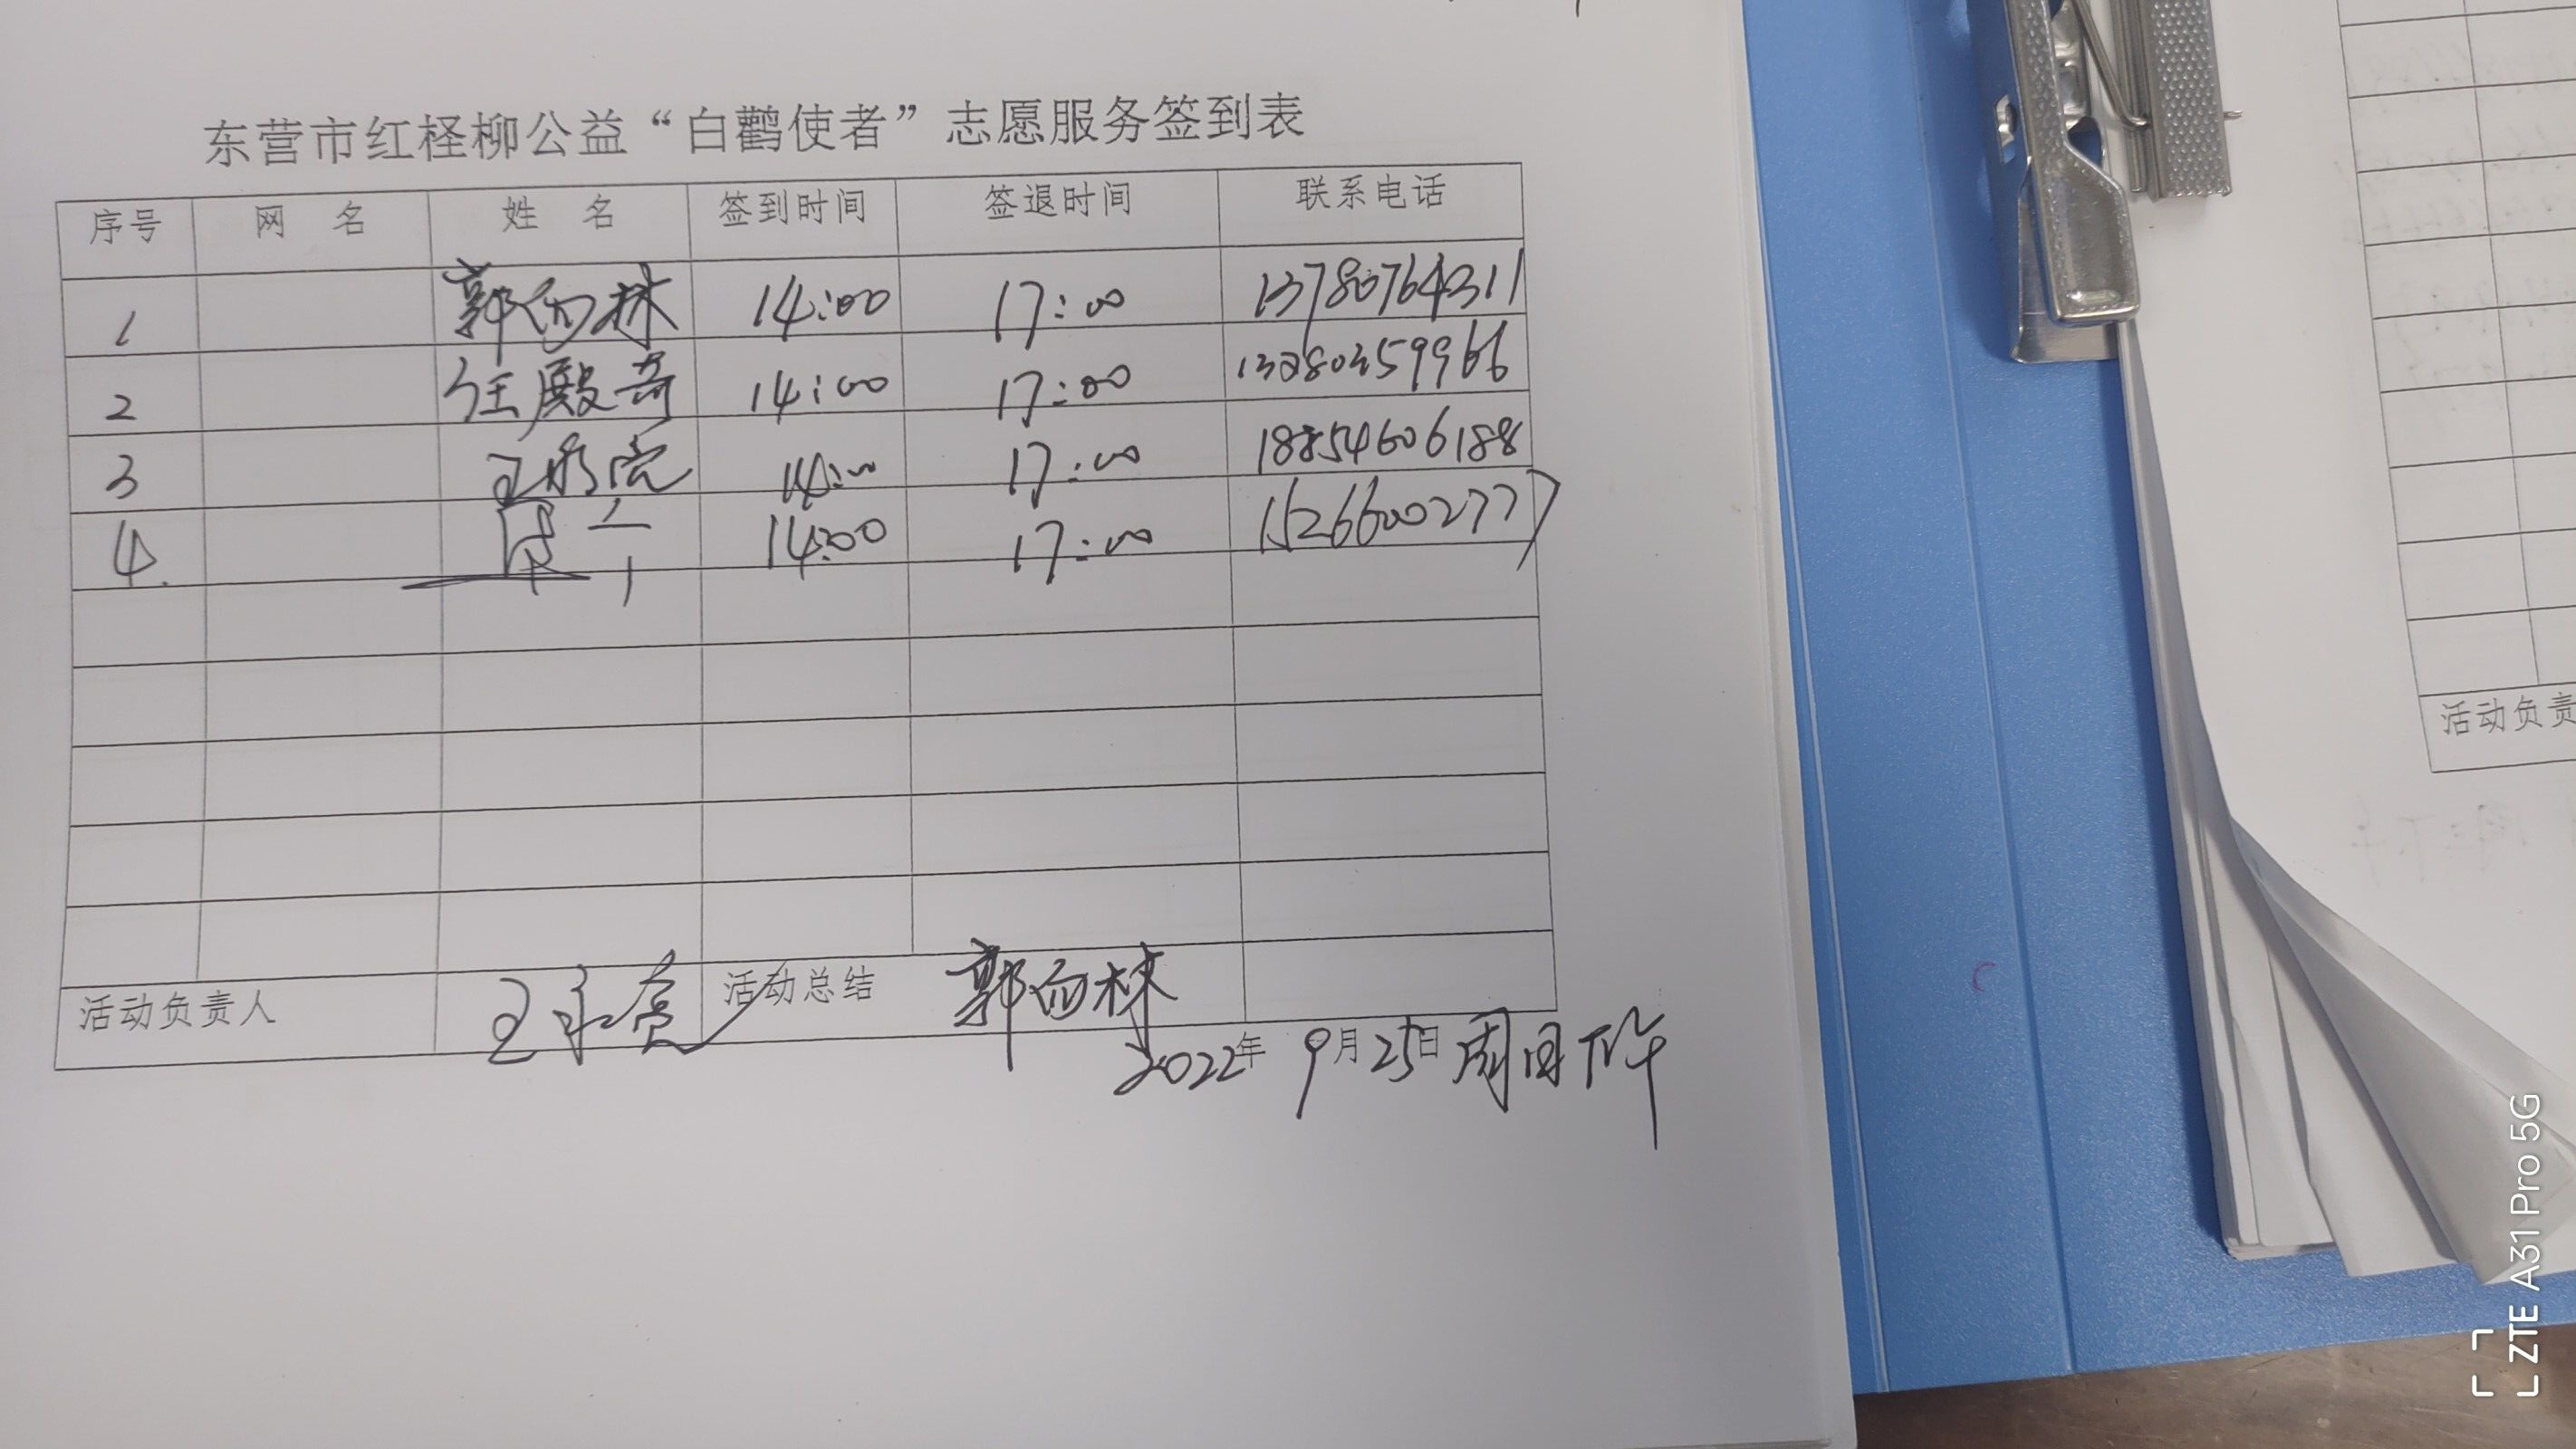 东营市红柽柳公益“白鹳使者”志愿服务签到表
序号 网 名 姓 名 签到时间 签退时间 联系电话
1 郭向林 14:00 17:00 13780764311
2 任殿奇 14:00 17:00 13280359966
3 14:00 17:00 18854606188
4. 14:00 17:00 15266002777
活动负责人 王永亮 活动总结 郭向林
2022年 9月25日周日下午
活动负责
ZTE A31 Pro 5G